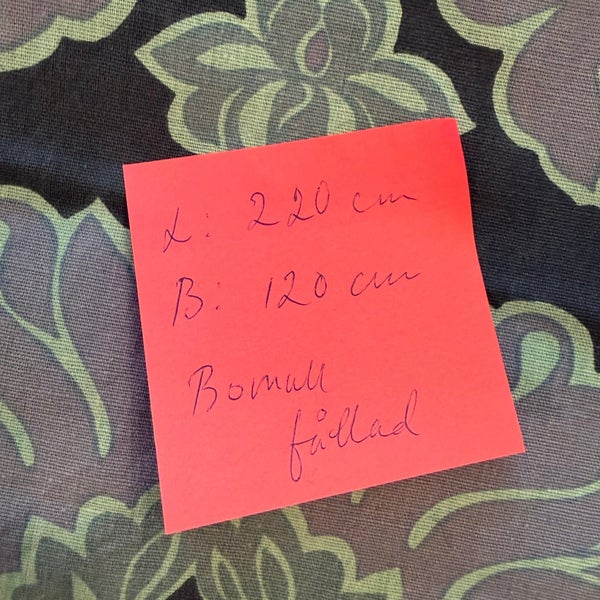 L: 220 cm
B: 120 cm
Bomull
fållad